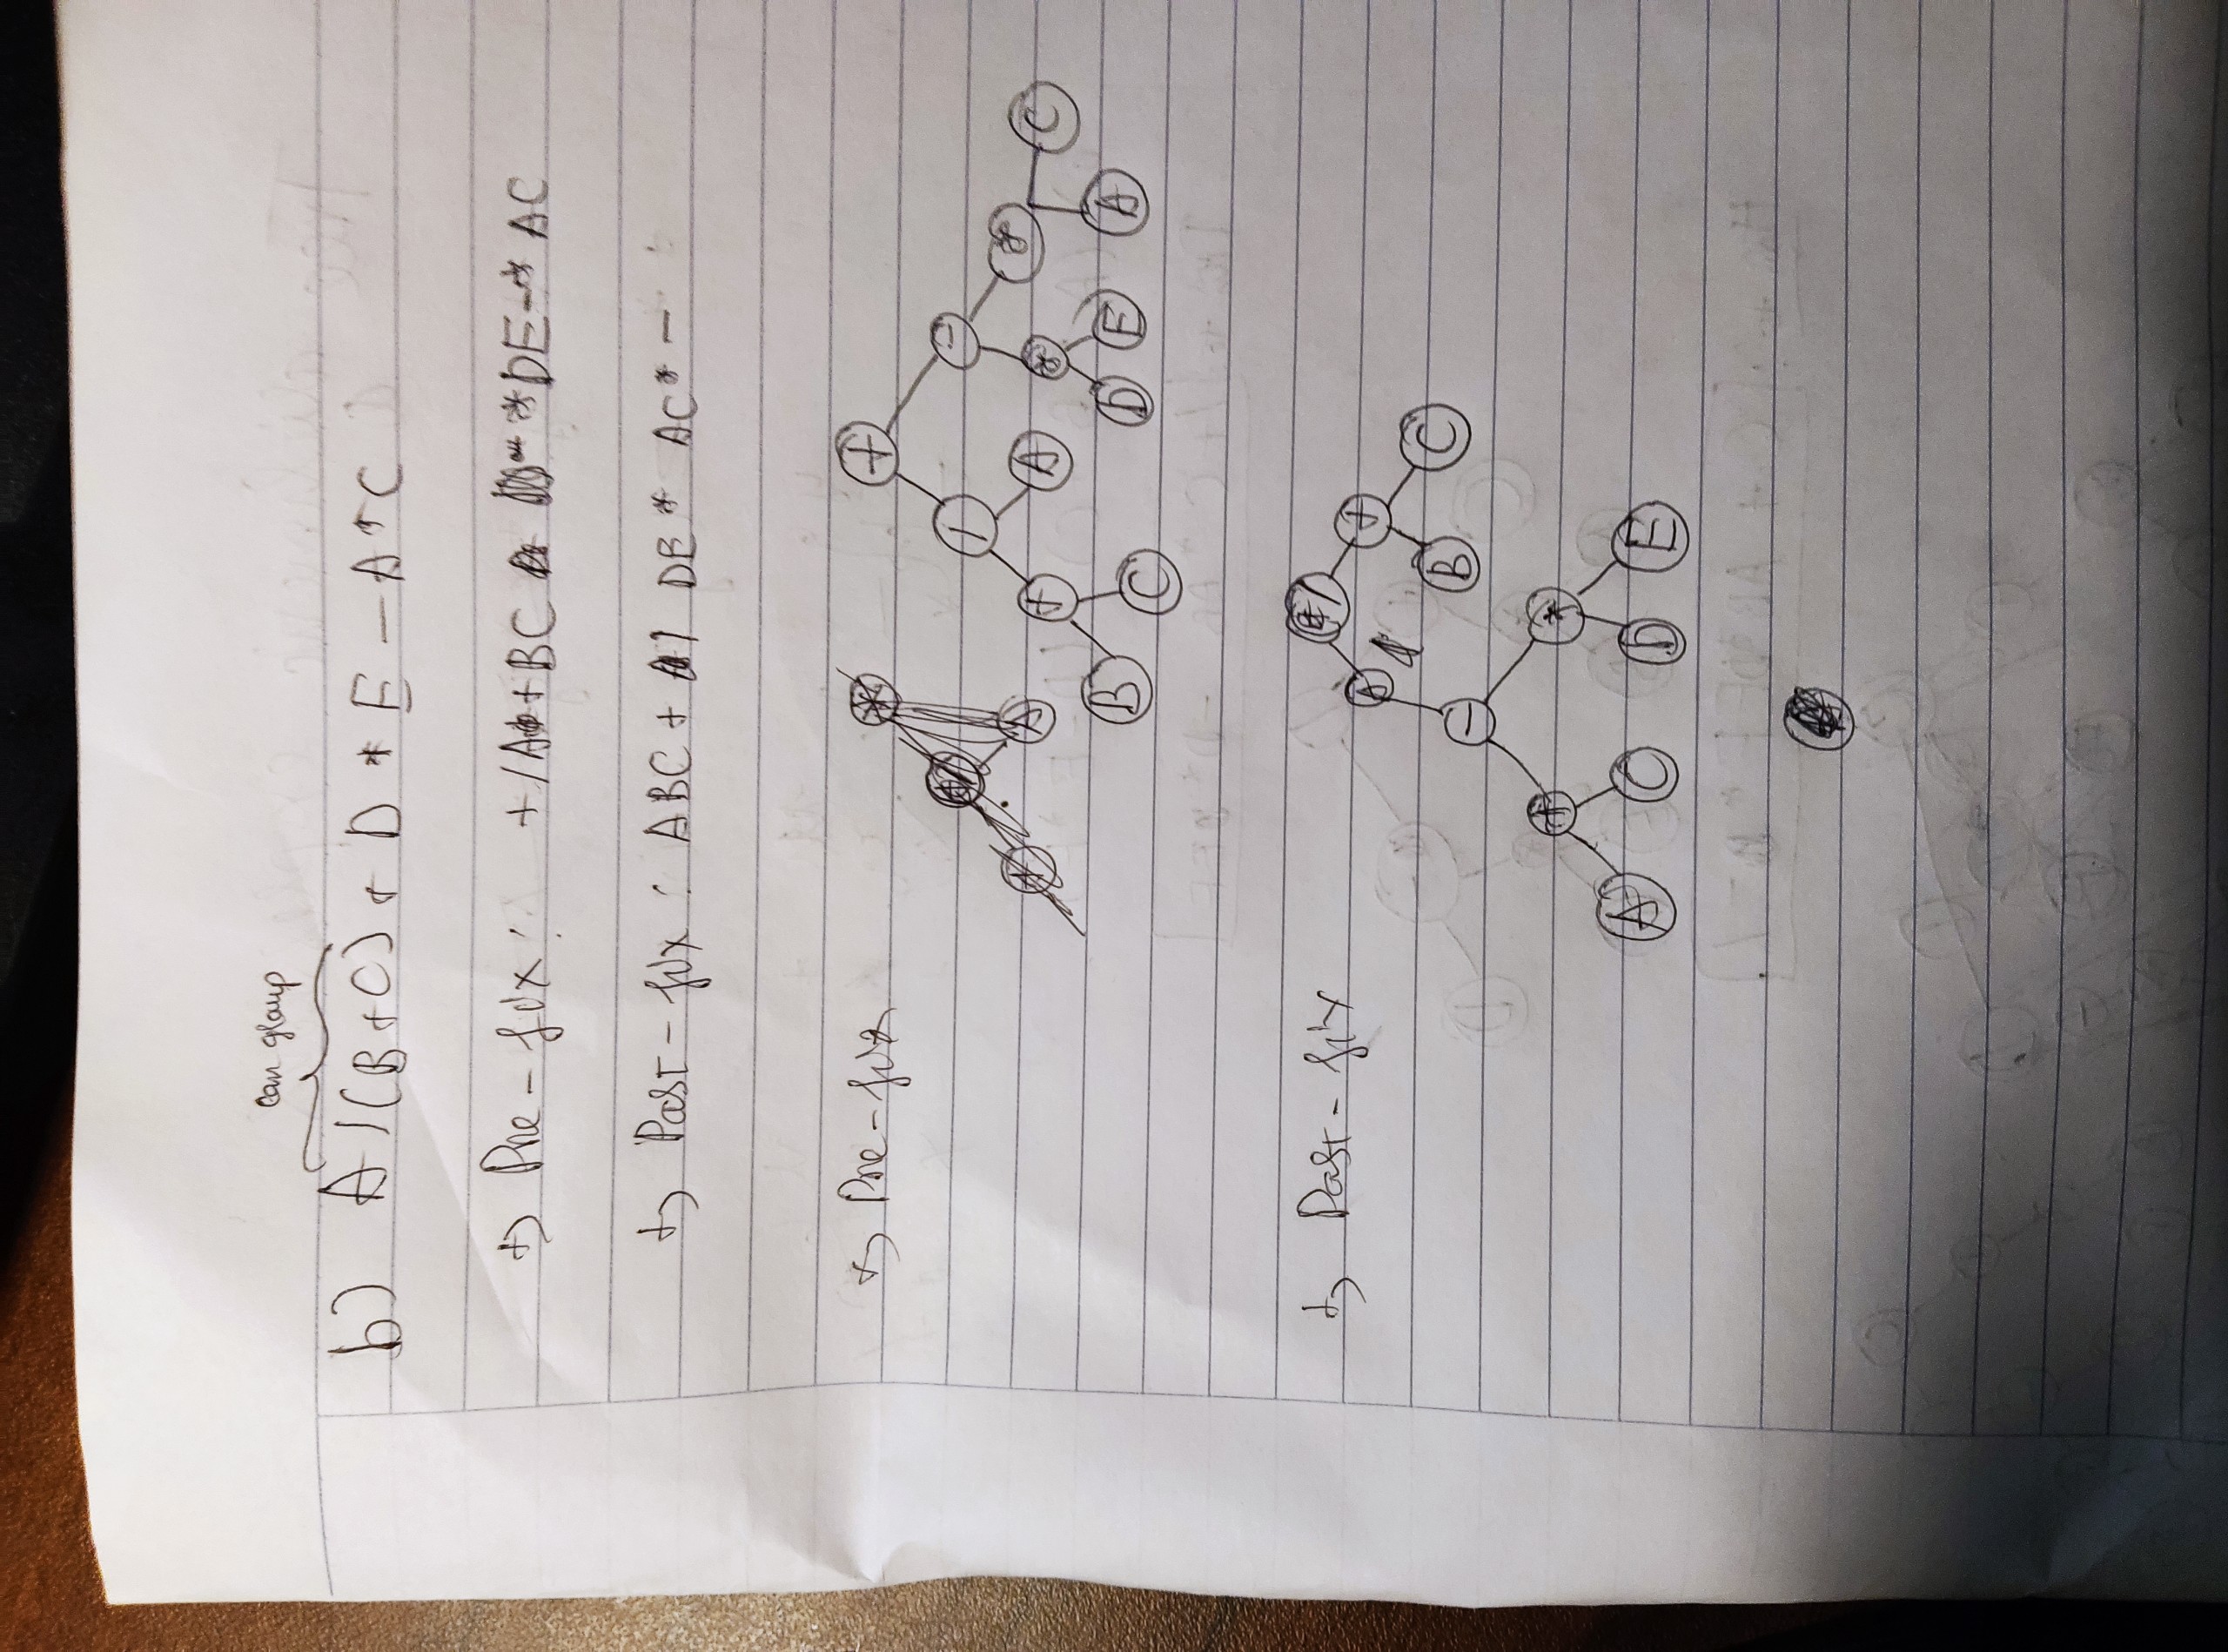 can group
b) A/(B+C) + D * E - A * C
+) Pre-fix: +/A+BC *DE-* AC
+) Post-fix: ABC + / DE* AC* -
+) Pre-fix
+
/ -
+ A * * C
B C D E A
+) Post-fix
/
A +
B C
-
* *
A C D E